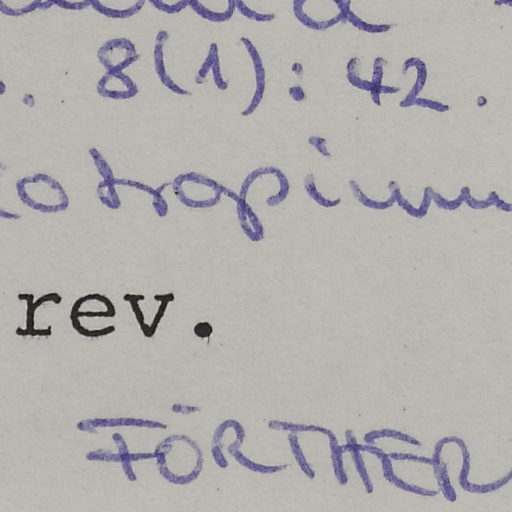 . 8(1): 42.
otropium
rev.
FÖRTHER